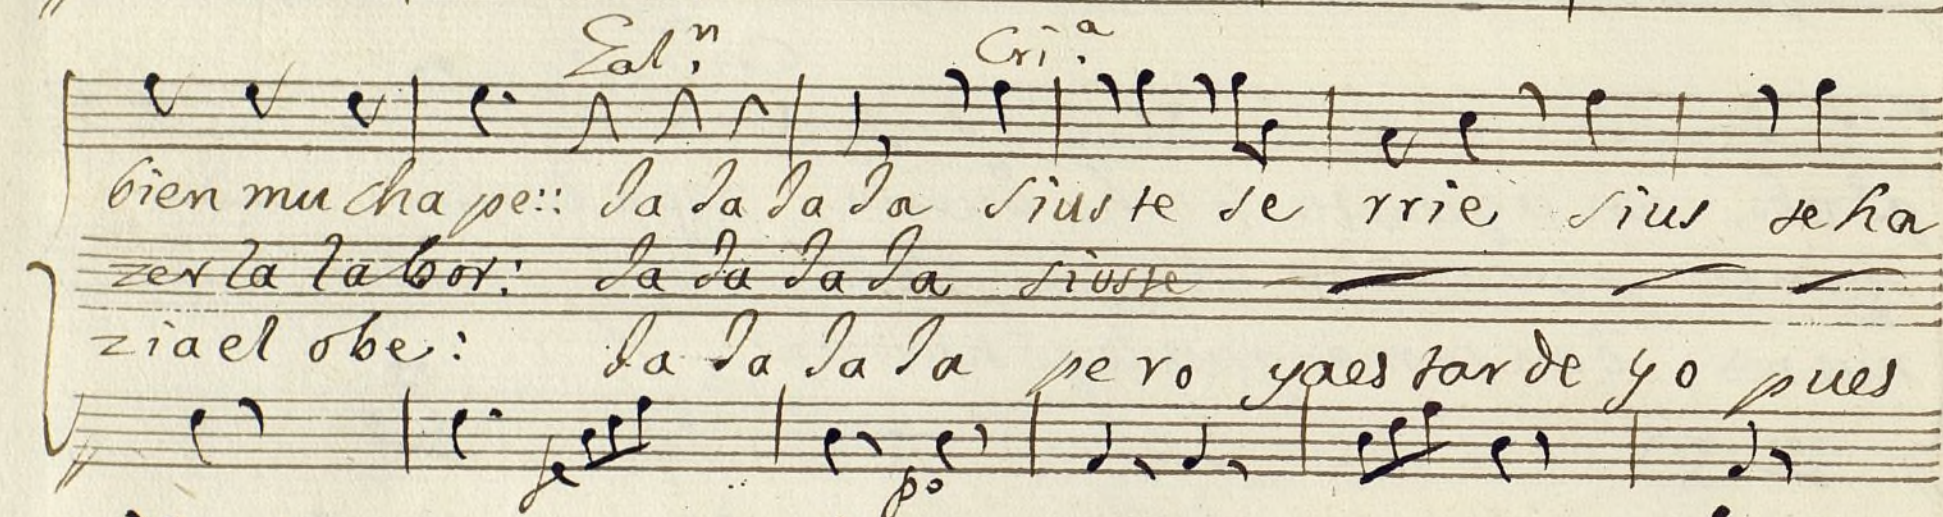 Gal.n Cri.a
bien mu cha pe:: Ja Ja Ja Ja sius te se rrie sius te ha
zer la la bor: Ja Ja Ja Ja siuste
zia el obe: Ja Ja Ja Ja pe ro yaes tar de yo pues
fe po